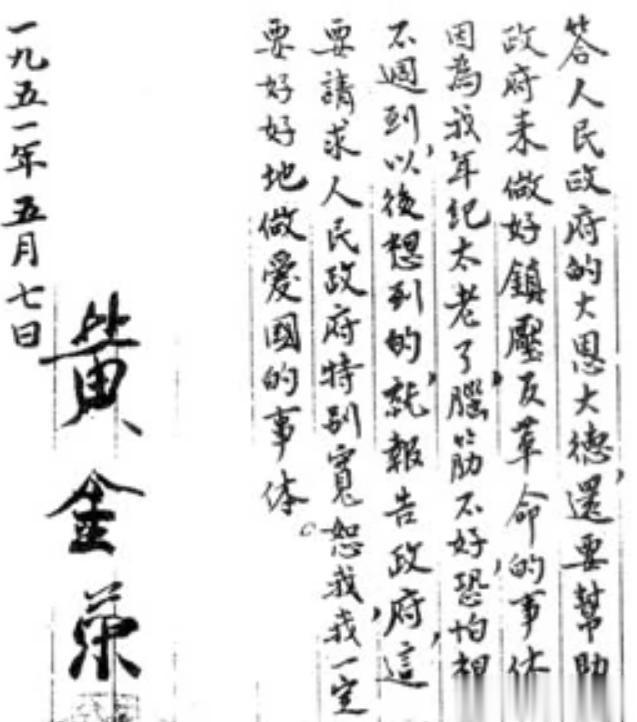 答人民政府的大恩大德，還要幫助
政府来做好鎮壓反革命的事体
因為我年纪太老了，腦筋不好，恐怕想
不週到，以後想到的，就報告政府，這
要請求人民政府特别寬恕我，我一定
要好好地做愛國的事体。
黄金荣
一九五一年五月七日